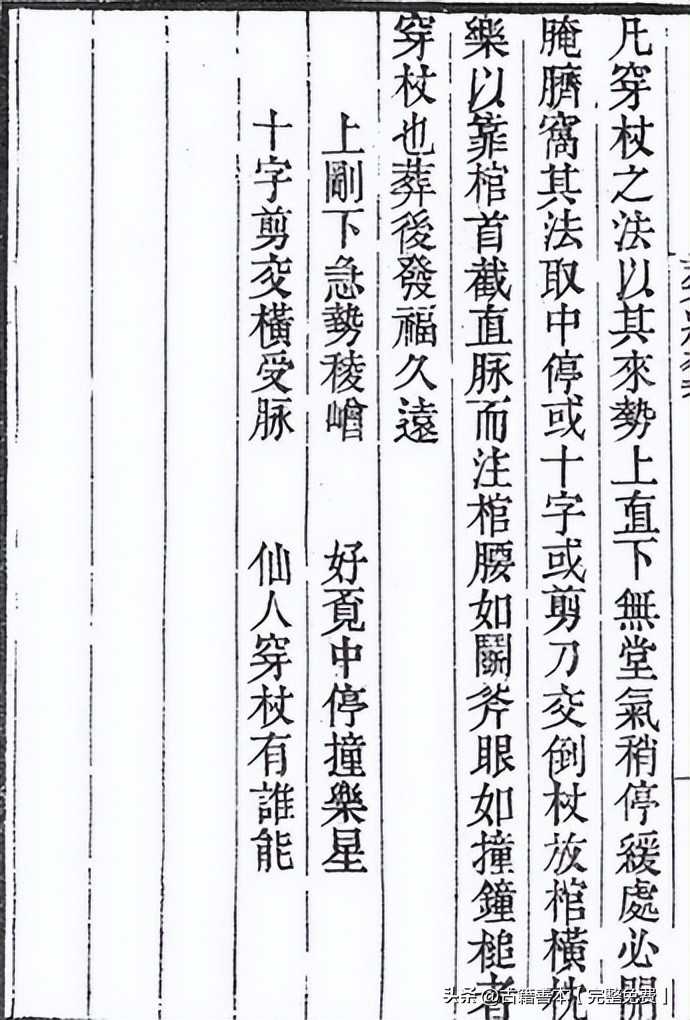 凡穿杖之法以其來勢上直下無堂氣稍停緩處必開
腌臍窩其法取中停或十字或剪刀交倒杖放棺橫枕
樂以靠棺首截直脉而注棺腰如鬭斧眼如撞鐘槌者
穿杖也葬後發福久遠
上剛下急勢稜嶒 好覓中停撞樂星
十字剪交橫受脉 仙人穿杖有誰能
头条 @古籍善本【完整免费】